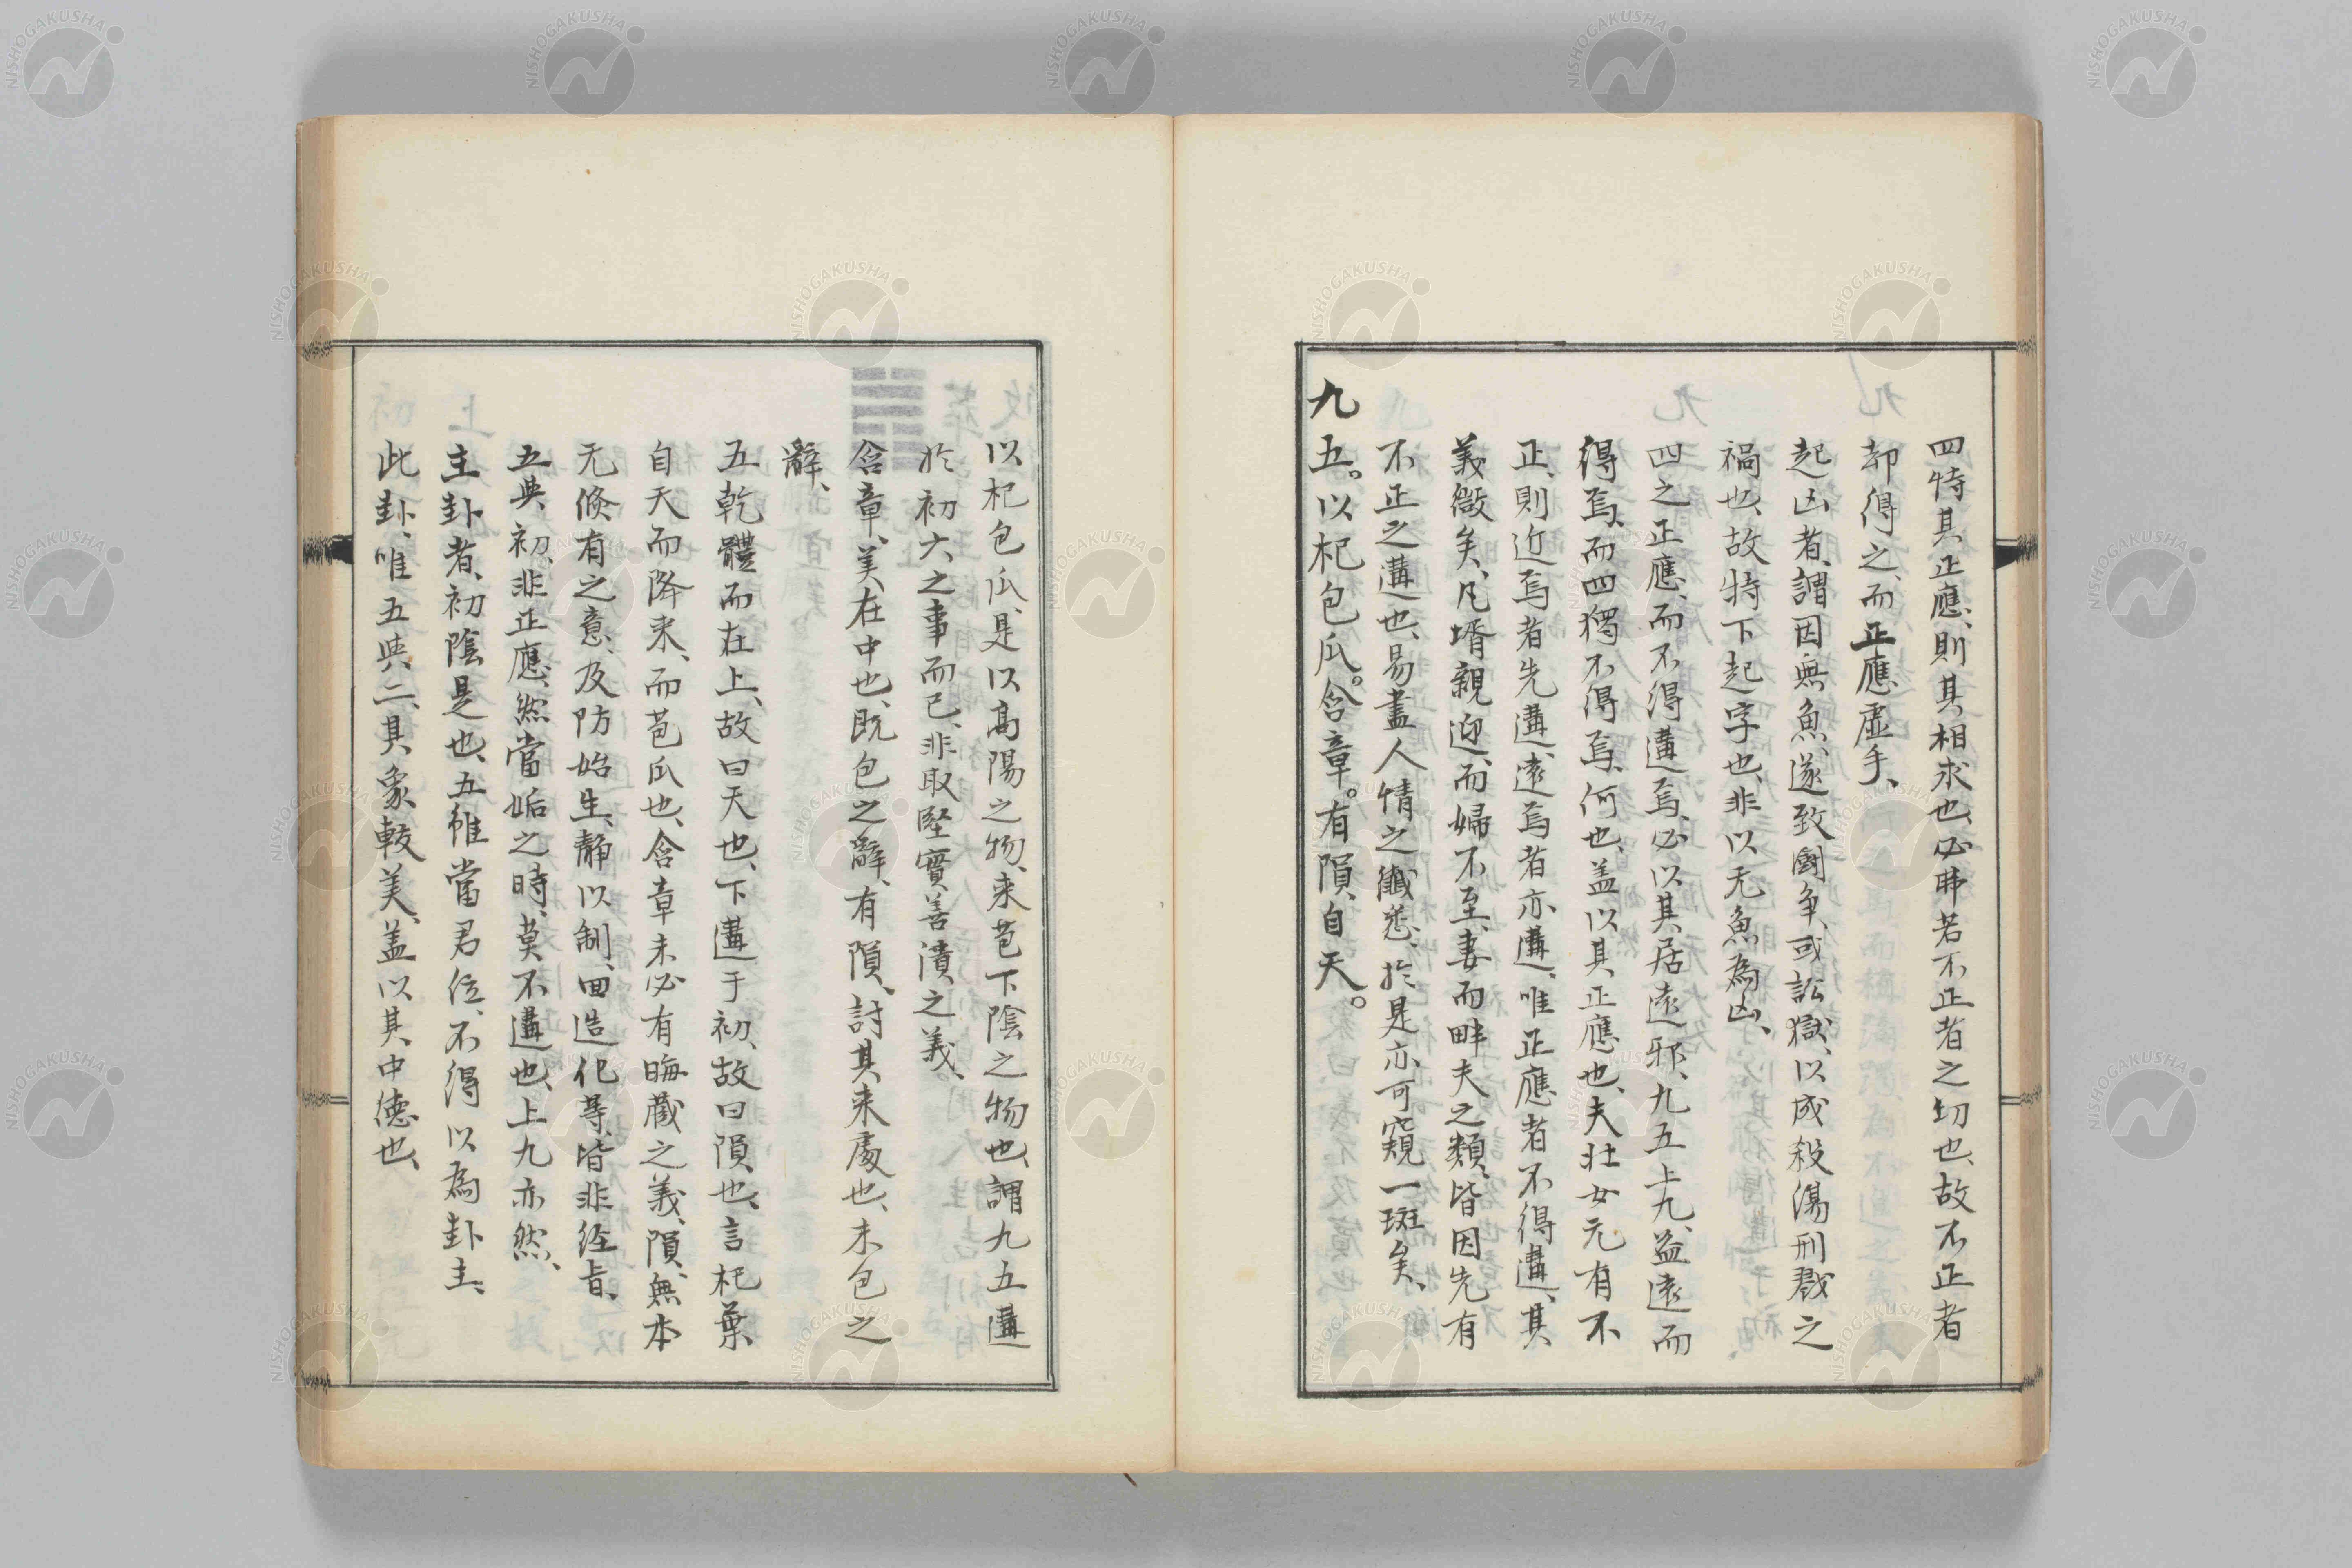 四恃其正應、則其相求也、必弗若不正者之切也、故不正者
却得之、而正應虛手、
起凶者、謂因無魚、遂致鬪争、或訟獄、以成殺傷刑戮之
禍也、故特下起字也、非以无魚為凶、
四之正應、而不得遘焉、必以其居遠邪、九五上九、益遠而
得焉、而四獨不得焉、何也、盖以其正應也、夫壯女元有不
正、則近焉者先遘、遠焉者亦遘、唯正應者不得遘、其
義㣲矣、凡壻親迎、而婦不至、妻而畔夫之類、皆因先有
不正之遘也、易盡人情之纖悉、於是亦可窺一斑矣、
九五。以杞包瓜。含章。有隕、自天。
以杞包瓜、是以高陽之物、来苞下陰之物也、謂九五遘
於初六之事而已、非取堅實善潰之義、
含章、美在中也、既包之辭、有隕、討其来處也、未包之
辭、
五乾體而在上、故曰天也、下遘于初、故曰隕也、言杞葉
自天而降来、而苞瓜也、含章未必有晦蔵之義、隕、無本
无倏有之意、及防始生、靜以制、囬造化等、皆非經旨、
五與初、非正應、然當姤之時、莫不遘也、上九亦然、
主卦者、初陰是也、五雖當君位、不得以為卦主、
此卦、唯五與二、其象較美、盖以其中德也、
NISHOGAKUSHA